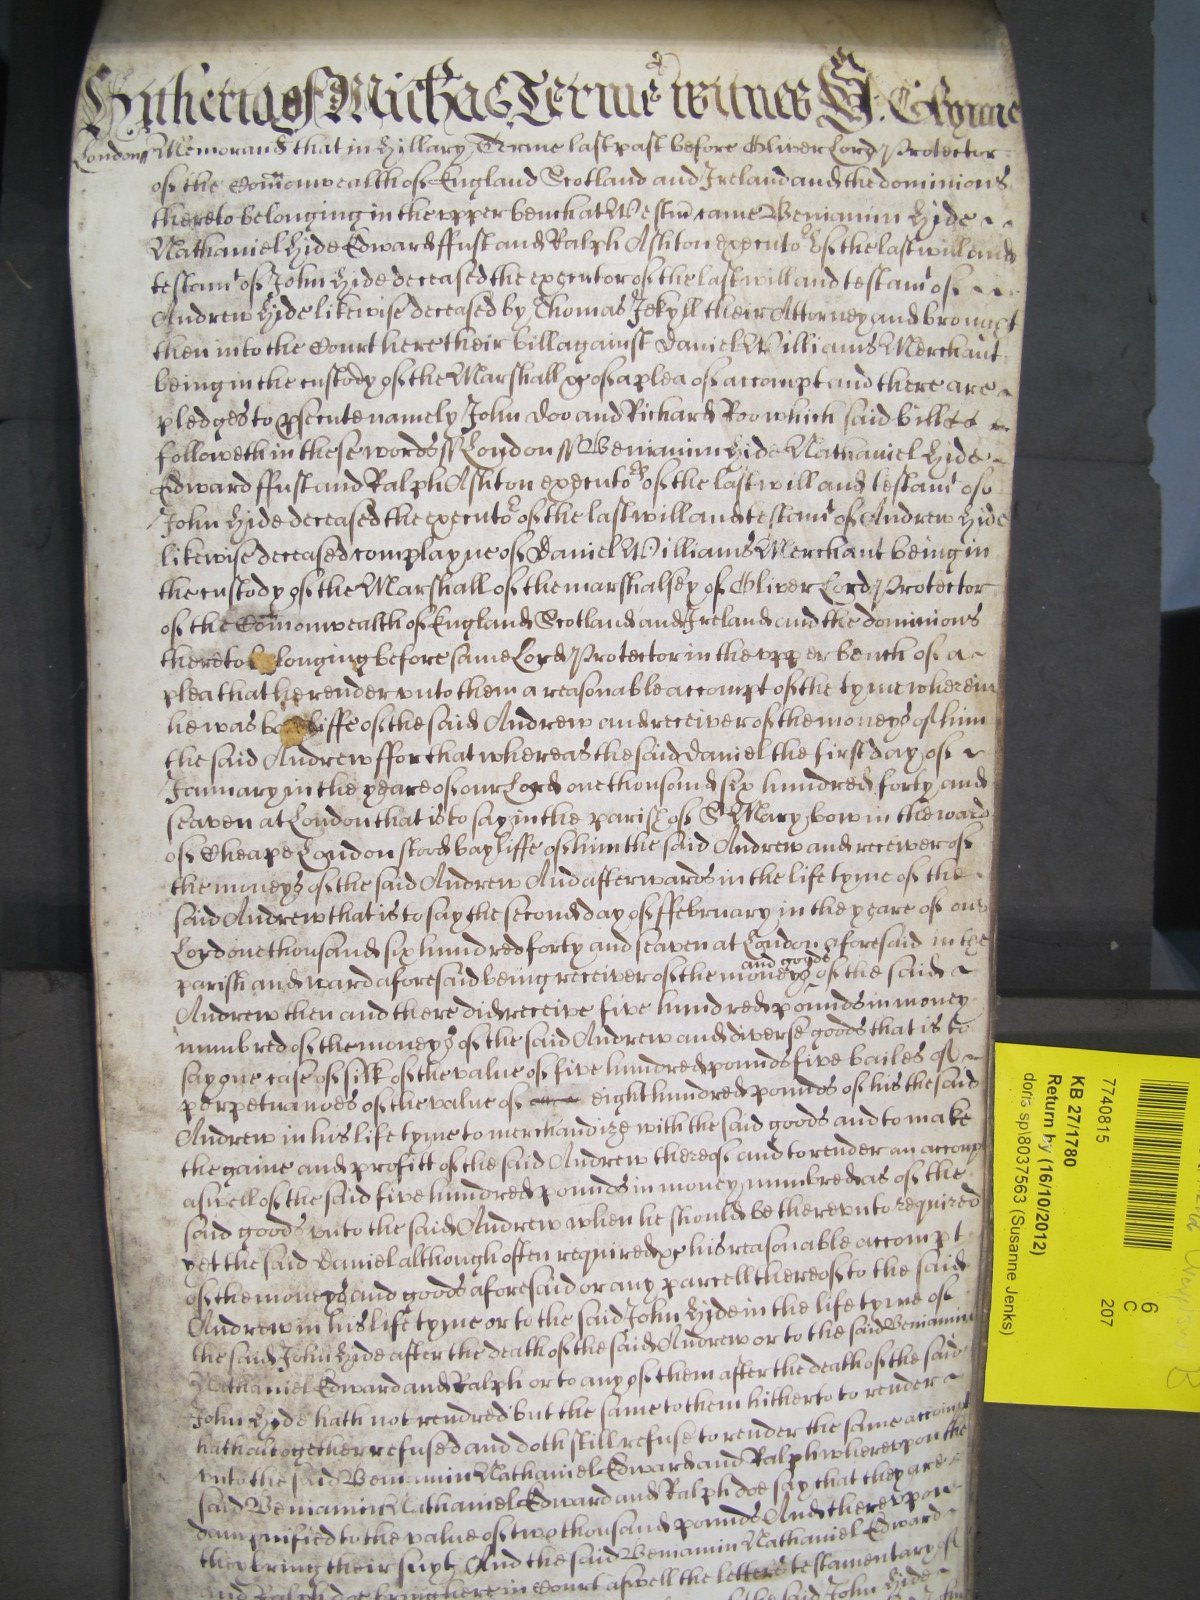 Hitherto of Michas Terme witnes S: Glynne
London ss Memorand that in Hillary Terme last past before Oliver Lord Protector
of the Comonwealth of England Scotland and Ireland and the dominions
thereto belonging in the vpper bench at Westm came Beniamin Hide
Nathaniel Hide Edward ffust and Ralph Ashton executors of the last will and
testam of John Hide deceased the executor of the last will and testam of
Andrew Hide likewise deceased by Thomas Jekyll their Attorney and brought
then into the Court here their bill against Daniel Williams Merchant
being in the custody of the Marshall &c of a plea of accompt and there are
pledges to psecute namely John Doo and Richard Roo which said bill
followeth in these words ss London ss Beniamin Hide Nathaniel Hide
Edward ffust and Ralph Ashton executors of the last will and testam of
John Hide deceased the executor of the last will and testam of Andrew Hide
likewise deceased complayne of Daniel Williams Merchant being in
the custody of the Marshall of the marshalsey of Oliver Lord Protector
of the Comonwealth of England Scotland and Ireland and the dominions
thereto longing before same Lord Protector in the vpper bench of a
plea that he render vnto them a reasonable accompt of the tyme wherein
he was bayliffe of the said Andrew and receiver of the moneys of him
the said Andrew ffor that whereas the said Daniel the first day of
January in the yeare of our Lord one thousand six hundred forty and
seaven at London that is to say in the parish of St Mary bow in the ward
of Cheape London stood bayliffe of him the said Andrew and receiver of
the moneys of the said Andrew And afterwards in the life tyme of the
said Andrew that is to say the second day of ffebruary in the yeare of our
Lord one thousand six hundred forty and seaven at London aforesaid in the
and goods
parish and ward aforesaid being receiver of the moneys of the said
Andrew then and there did receive five hundred pounds in money
numbred of the moneys of the said Andrew and diverse goods that is to
say one case of silk of the value of five hundred pounds five bailes of
perpetuanoes of the value of eight hundred pounds of his the said
Andrew in his life tyme to merchandize with the said goods and to make
the gaine and profitt of the said Andrew thereof and to render an accompt
aswell of the said five hundred pounds in money numbred as of the
said goods vnto the said Andrew when he should be therevnto required
yet the said Daniel although often required &c his reasonable accompt
of the moneys and goods aforesaid or any parcell thereof to the said
Andrew in his life tyme or to the said John Hyde in the life tyme of
the said John Hyde after the death of the said Andrew or to the said Beniamin
Nathaniel Edward and Ralph or to any of them after the death of the said
John Hyde hath not rendred but the same to them hitherto to render
hath altogether refused and doth still refuse to render the same accompt
vnto the said Beniamin Nathaniel Edward and Ralph wherevpon the
said Beniamin Nathaniel Edward and Ralph doe say that they are
damnified to the value of two thousand pounds And therevpon
they bring their suyt And the said Beniamin Nathaniel Edward
and Ralph doe bring here in Court aswell the letters testamentary of
the said John Hide
7740815
KB 27/1780
Return by (16/10/2012)
doris sp\8037563 (Susanne Jenks)
6
C
207
B